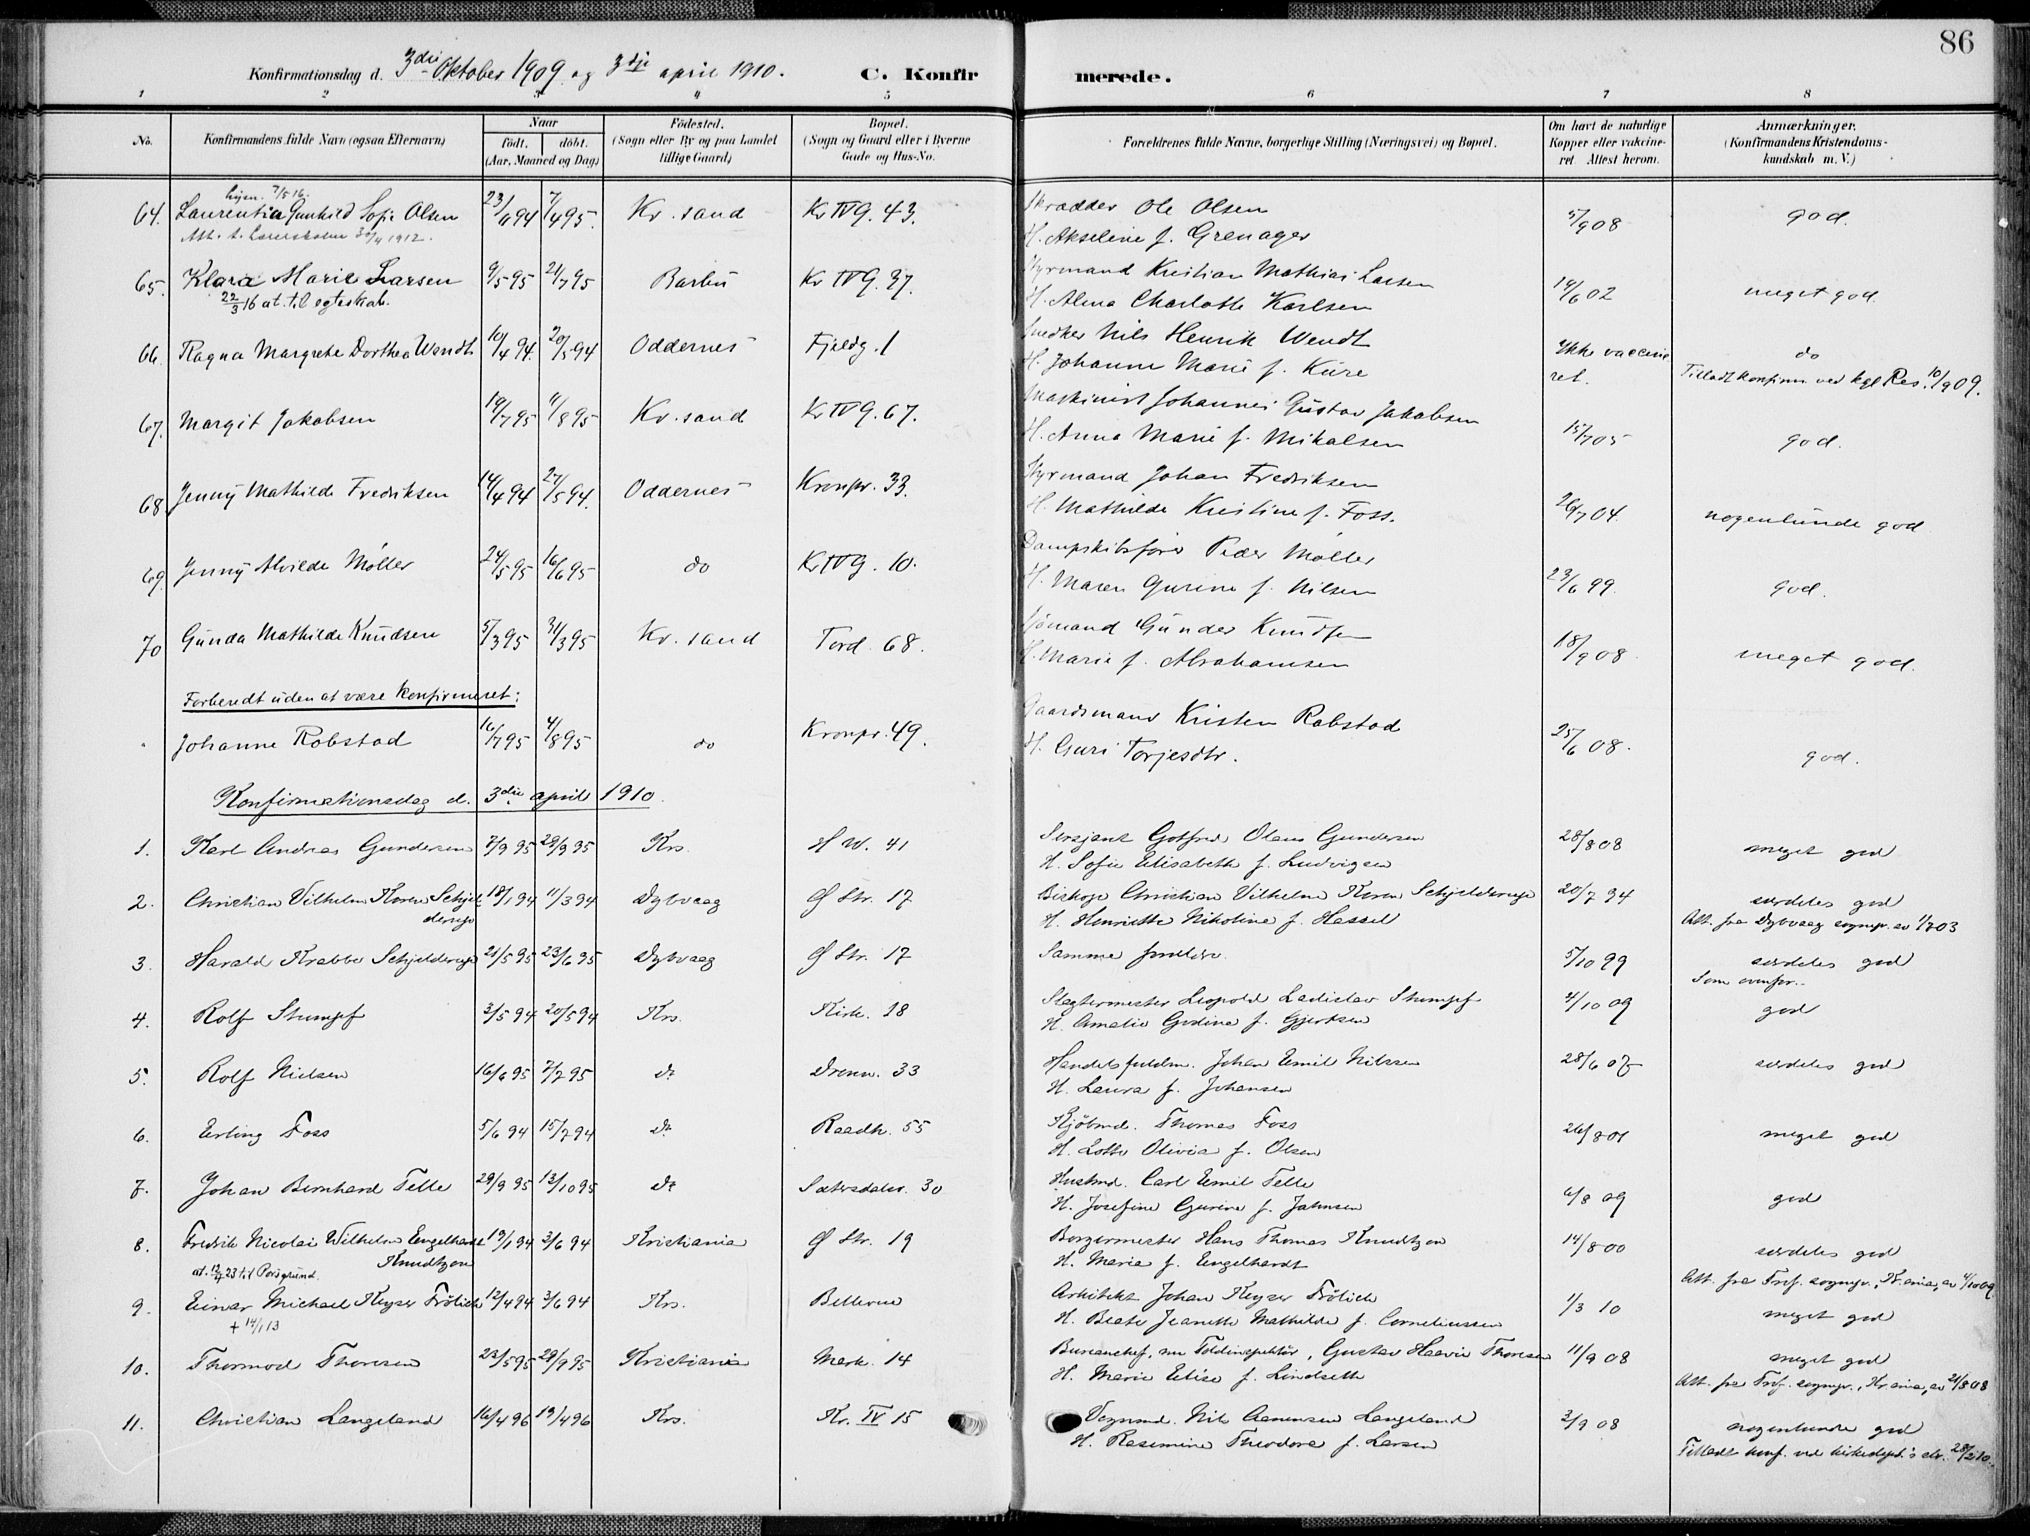 86
Konfirmationsdag d. 3die Oktober 1909 og 3dje april 1910. C. Konfir merede.
1 2 3 4 5 6 7 8
No. Konfirmandens fulde Navn (ogsaa Efternavn) Naar født. døbt. (Aar, Maaned og Dag) Fødested. (Sogn eller By og paa Landet tillige Gaard) Bopæl. (Sogn og Gaard eller i Byerne Gade og Hus-No. Forældrenes fulde Navne, borgerlige Stilling (Næringsvei) og Bopæl. Om havt de naturlige Kopper eller vakcineret. Attest herom. Anmærkninger. (Konfirmandens Kristendomskundskab m. V.)
7/5 16.
64. Laurentia Gunhild Sofie Olsen 23/11 94 7/4 95. Kr.sand Kr IV G. 43. Skrædder Ole Olsen 5/9 08 god.
Att. t. Lærerskolen 30/4 1912. H. Akseline f. Grenager
65. Klara Marie Larsen 9/5 95 21/7 95 Barbu Kr IV G. 37. Styrmand Kristian Mathias Larsen 19/6 02 meget god.
22/3 16 at. til egteskab. H. Alma Charlotte Karlsen
66. Ragna Margrete Dorthea Wendt 10/4 94. 20/5 94 Oddernes Fjeldg. 1 Snedker Nils Henrik Wendt Ikke vaccineret. do
H. Johanne Marie f. Kiire Tilladt konfirm. ved kgl Res. 10/9 09.
67. Margit Jakobsen 19/7 95 11/8 95 Kr.sand Kr IV G. 67. Maskinist Johannes Gustav Jakobsen 15/7 05 god.
H. Anna Marie f. Mikalsen
68. Jenny Mathilde Fredriksen 14/4 94 27/5 94. Oddernes Kronpr. 33. Styrmand Johan Fredriksen 26/7 04. nogenlunde god
H. Mathilde Kristine f. Foss.
69. Jenny Alvilde Møller 24/5 95 16/6 95 do Kr IV G. 10. Dampskibsfører Peder Møller 23/6 99. god.
H. Maren Gurine f. Nilsen
70 Gunda Mathilde Knudsen 5/3 95 31/3 95 Kr.sand Tord. 68. Sjømand Gunder Knudsen 18/9 08. meget god.
H. Marie f. Abrahamsen
Forberedt uden at være konfirmeret:
Johanne Robstad 16/7 95 4/8 95 do Kronpr. 49. Gaardsmand Kristen Robstad 25/6 08. god.
H. Guri Torjesdtr.
Konfirmationsdag d. 3die april 1910.
1. Karl Andreas Gundersen 7/9 95 29/9 95 Krs. H W. 41 Sersjant Gotfred Olaus Gundersen 28/8 08 meget god
H. Sofie Elisabeth f. Ludvigsen
2. Christian Vilhelm Koren Schjelderup 18/1 94 11/3 94 Dybvaag Ø Str. 17 Biskop Christian Vilhelm Koren Schjelderup 20/7 94 særdeles god
H. Henriette Nikoline f. Hassel Att. fra Dybvaag sognepr. av 1/7 03
3. Harald Krabbe Schjelderup 21/5 95 23/6 95 Dybvaag Ø Str. 17 Samme forældre 5/10 99 særdeles god
Som ovenfor.
4. Rolf Stumpf 3/5 94 20/5 94 Krs. Kirk. 18 Slagtermester Leopold Ladislav Stumpf 4/10 09 god
H. Amalie Godine f. Gjertsen
5. Rolf Nielsen 16/6 95 7/7 95 do Dronn. 33 Handelsfuldm. Johan Emil Nilssen 28/6 07 særdeles god
H. Laura f. Johansen
6. Erling Foss 5/6 94 15/7 94 do Raadh. 55 Kjøbmd. Thomas Foss 26/8 01 meget god
H. Lotte Olivia f. Olsen
7. Johan Bernhard Telle 29/9 95 13/10 95 do Sætersdalsv. 30 Husbmd. Carl Emil Telle 6/8 09 god
H. Josefine Gurine f. Jahnsen
8. Fredrik Nicolai Wilhelm Engelhardt Knudtzon 19/1 94 3/6 94 Kristiania Ø Str. 19 Borgermester Hans Thomas Knudtzon 14/8 00 særdeles god
at. 12/4 23 til Porsgrund. H. Maria f. Engelhardt Att. fra Tref. sognepr., Kr.ania, av 4/10 09
9. Einar Michael Keyser Frölich 12/4 94 3/6 94 Krs. Bellevue Arkitekt Johan Keyser Frölich 1/3 10 meget god
+ 14/1 13 H. Beate Jeanette Mathilde f. Corneliussen
10. Thormod Thoresen 23/5 95 29/9 95 Kristiania Mark. 14 Bureauchef, nu Toldinspektör, Gustav Haavie Thoresen 11/9 08 meget god
H. Marie Elise f. Lindseth Att. fra Tref. sognepr., Kr.ania, av 21/8 08
11. Christian Langeland 16/4 96 19/4 96 Krs. Kr. IV 15 Vognmd. Nils Aanensen Langeland 3/9 08 nogenlunde god
H. Rasmine Theodora f. Larsen Tilladt konf. ved kirkedept.s skr. 28/2 10.